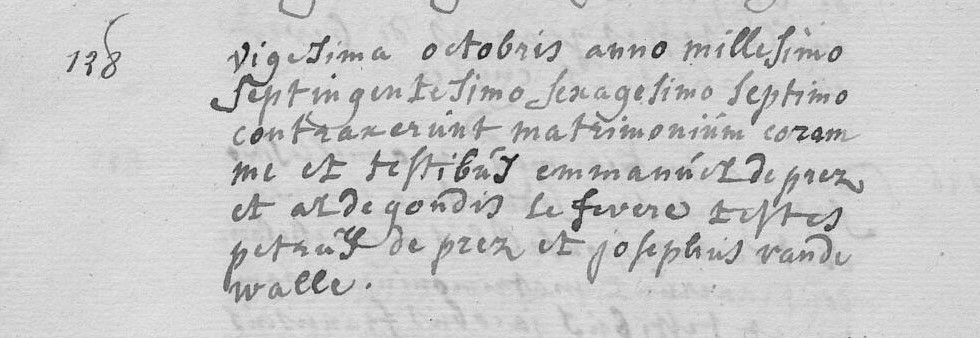 138 vigesima octobris anno millesimo
septingentesimo sexagesimo septimo
contraxerunt matrimonium coram
me et testibus emmanuel de prez
et aldegondis le fevere testes
petrus de prez et josephus vande
walle.